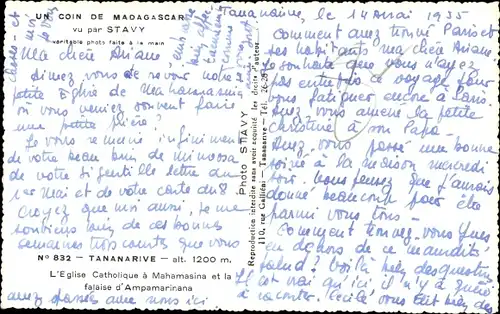 UN COIN DE MADAGASCAR
vu par STAVY
véritable photo faite à la main
Ma chère Ariane
Aimez vous de revoir notre
petite Eglise de Mahamasina
où vous veniez souvent faire
une petite prière?
Je vous remercie infiniment
de votre beau brin de mimosa
de votre si gentille lettre du
1er Mai et de votre carte du 8
Croyez que moi aussi, je me
souviens bien de ces bonnes
semaines trop courtes que vous
No 832 - TANANARIVE - alt. 1200 m.
L'Eglise Catholique à Mahamasina et la
falaise d'Ampamarinana
avez passées avec nous ici
Photo STAVY
Reproduction interdite sans avoir acquitté les droits d'auteur
110, rue Galliéni - Tananarive - Tél. 26-29
Tananarive, le 14 Mai 1955
Comment avez trouvé Paris et
ses habitants ma chère Ariane
Je souhaite que vous n'ayez
pas de voyage pour
vous fatiguer encore à Paris.
Avez vous amené la petite
Christine à son Papa.
Avez vous passé une bonne
soirée à la maison mercredi
soir. Vous pensez que j'aurais
donné beaucoup pour être
parmi vous tous -
Comment trouvez vous Yves
en dehors de ce maudite
salut? Voilà bien des questions
Il est vrai qu'ici, il n'y a guère
à raconter. Cécile vous fait bien des